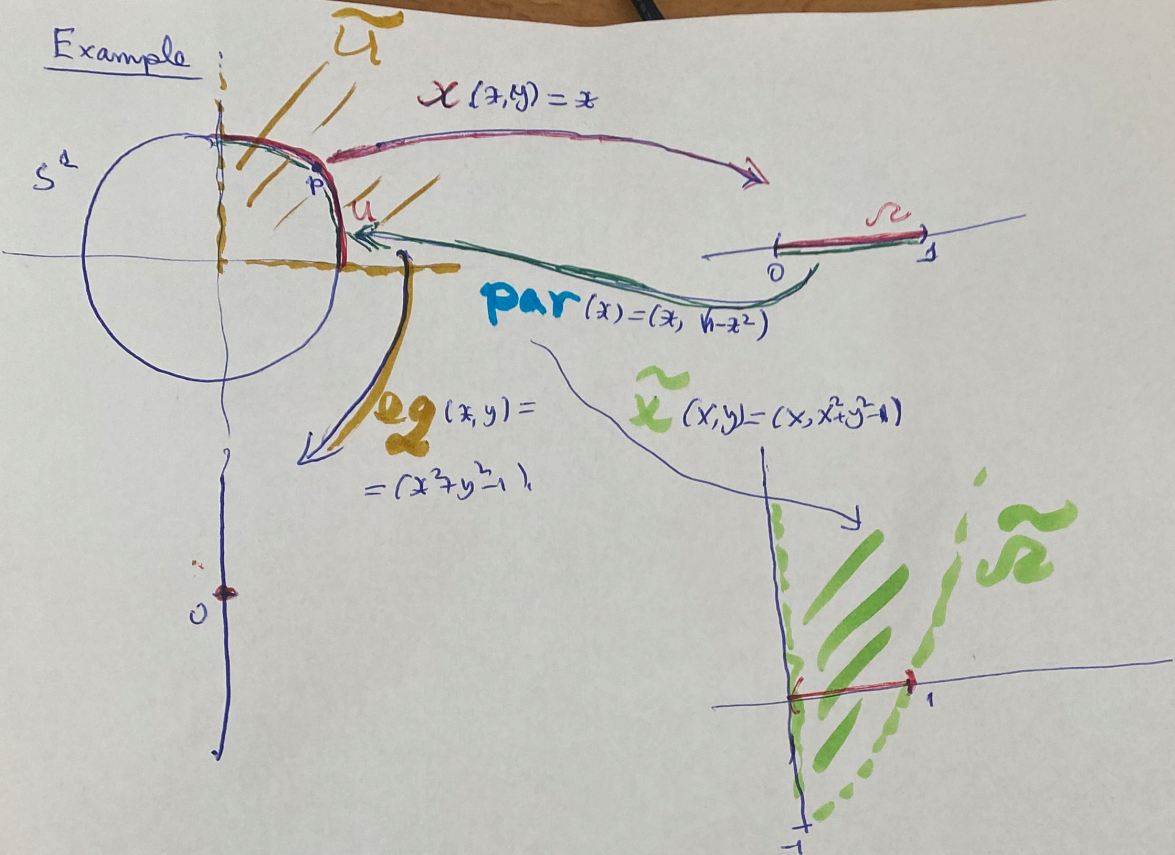 Example
Ũ
χ (x,y) = x
S¹
p
U
Ω
0
1
par (x) = (x, √1-x²)
χ̃ (x,y) = (x, x²+y²-1)
eq (x,y) =
= (x²+y²-1).
Ω̃
0
1
-1